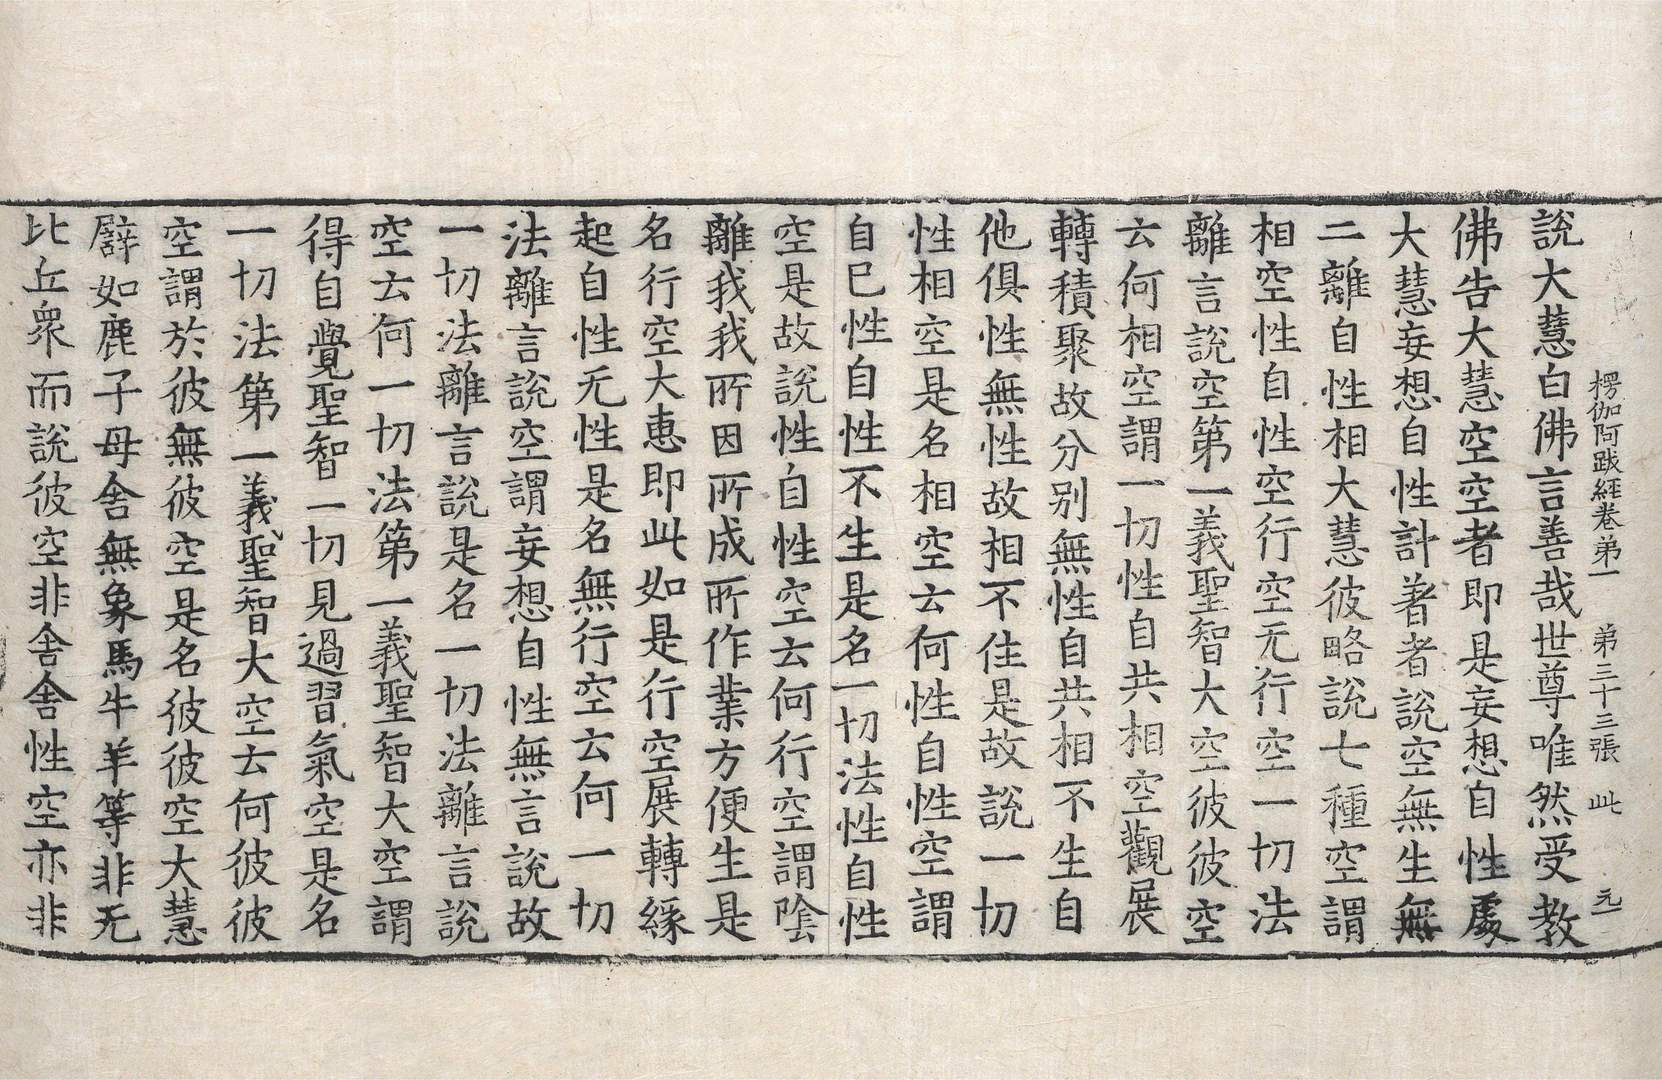 楞伽阿跋経卷弟一　弟三十三張　此　元一
說大慧白佛言善哉世尊唯然受教
佛告大慧空空者即是妄想自性處
大慧妄想自性計著者說空無生無
二離自性相大慧彼略說七種空謂
相空性自性空行空无行空一切法
離言說空第一義聖智大空彼彼空
云何相空謂一切性自共相空觀展
轉積聚故分别無性自共相不生自
他俱性無性故相不住是故說一切
性相空是名相空云何性自性空謂
自巳性自性不生是名一切法性自性
空是故說性自性空云何行空謂陰
離我我所因所成所作業方便生是
名行空大惠即此如是行空展轉緣
起自性无性是名無行空云何一切
法離言說空謂妄想自性無言說故
一切法離言說是名一切法離言說
空云何一切法第一義聖智大空謂
得自覺聖智一切見過習氣空是名
一切法第一義聖智大空云何彼彼
空謂於彼無彼空是名彼彼空大慧
譬如鹿子母舍無象馬牛羊等非无
比丘衆而說彼空非舍舍性空亦非